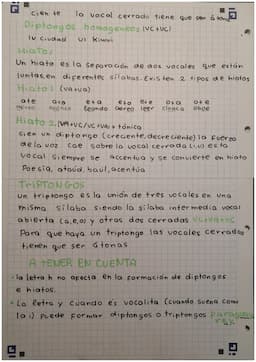 cien te la vocal cerrada tiene que ser átona
Diptongos homogéneos (VC+VC)
IU ciudad UI Kiwi
HIATOS
Un hiato es la separación de dos vocales que están
juntas en diferente sílabas. Existen 2 tipos de hiatos
Hiato 1 (VA+VA)
ate ato eta eto ote ota ote
aéreo leer
Hiato 2 (VA+VC/VC+VA)+tónica
si en un diptongo (creciente, decreciente) la fuerza
de la voz cae sobre la vocal cerrada (i,u) esta
vocal siempre se accentúa y se convierte en hiato
Poesía, ataúd, baúl, acentúa
TRIPTONGOS
Un triptongo es la unión de tres vocales en una
misma sílaba siendo la sílaba intermedia vocal
abierta (a,e,o) y otras dos cerradas VC+VA+VC
Para que haya un triptongo las vocales cerradas
tienen que ser átonas
A TENER EN CUENTA
· la letra h no afecta en la formación de diptongos
e hiatos
· La letra y cuando es vocalita (cuando suena como
la i) puede formar diptongos o triptongos